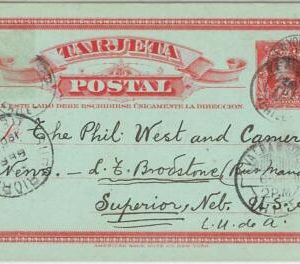 TARJETA
POSTAL
ESTE LADO DEBE ESCRIBIRSE ÚNICAMENTE LA DIRECCION.
The Phil West and Camera
News- L. T. Brodstone (Bus man
Superior, Neb. U.S.
E.U. de A.
AMERICAN BANK NOTE CO. NEW YORK.